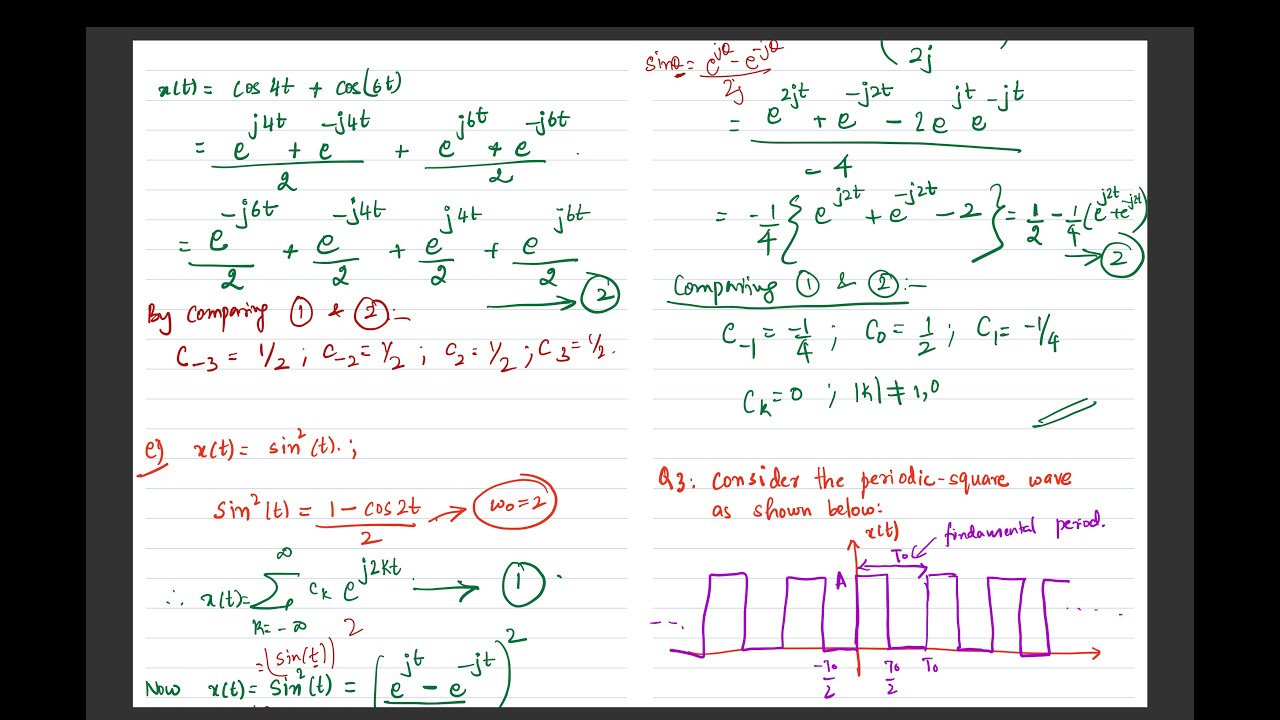 x(t) = cos 4t + cos(6t)
= (e^{j4t} + e^{-j4t})/2 + (e^{j6t} + e^{-j6t})/2 .
= e^{-j6t}/2 + e^{-j4t}/2 + e^{j4t}/2 + e^{j6t}/2 → ②
By comparing ① & ② :-
C_{-3} = 1/2 ; C_{-2} = 1/2 ; C_2 = 1/2 ; C_3 = 1/2.
e) x(t) = sin²(t). ;
sin²(t) = (1 - cos 2t)/2 → ω₀ = 2
∴ x(t) = ∑_{k=-∞}^{∞} c_k e^{j2kt} → ①
= (sin(t))²
Now x(t) = sin²(t) = (e^{jt} - e^{-jt})²
sinθ = (e^{jθ} - e^{-jθ})/2j
2j
= (e^{2jt} + e^{-j2t} - 2e^{jt} e^{-jt})/-4
= -1/4 {e^{j2t} + e^{-j2t} - 2} = 1/2 - 1/4 (e^{j2t} + e^{-j2t})
→ ②
Comparing ① & ② :-
C_{-1} = -1/4 ; C_0 = 1/2 ; C_1 = -1/4
C_k = 0 ; |k| ≠ 1,0
Q3: Consider the periodic-square wave
as shown below:
x(t)
T₀ fundamental period.
A
-T₀/2 T₀/2 T₀